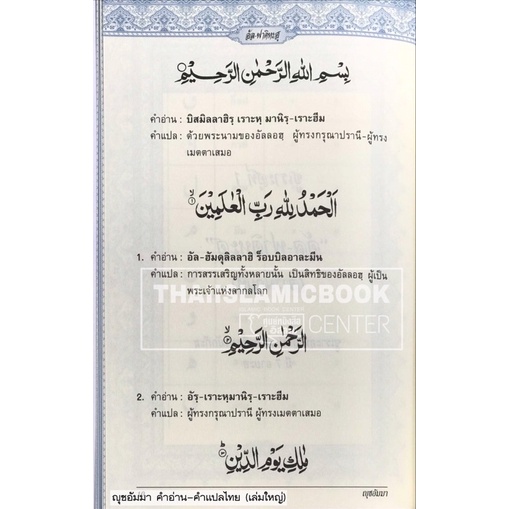 อัล-ฟาติหะฮฺ
بِسْمِ اللهِ الرَّحْمٰنِ الرَّحِيْمِ
คำอ่าน : บิสมิลลาฮิรฺ เราะหฺ มานิรฺ-เราะฮีม
คำแปล : ด้วยพระนามของอัลลอฮฺ ผู้ทรงกรุณาปรานี-ผู้ทรง
เมตตาเสมอ
اَلْحَمْدُ لِلّٰهِ رَبِّ الْعٰلَمِيْنَ ۙ١
1. คำอ่าน : อัล-ฮัมดุลิลลาฮิ ร็อบบิลอาละมีน
คำแปล : การสรรเสริญทั้งหลายนั้น เป็นสิทธิของอัลลอฮฺ ผู้เป็น
พระเจ้าแห่งสากลโลก
THAIISLAMICBOOK
CENTER
الرَّحْمٰنِ الرَّحِيْمِ ۙ٢
2. คำอ่าน : อัรฺ-เราะหฺมานิรฺ-เราะฮีม
คำแปล : ผู้ทรงกรุณาปรานี ผู้ทรงเมตตาเสมอ
مٰلِكِ يَوْمِ الدِّيْنِ ؕ٣
ญุซอัมมา
ญุซอัมมา คำอ่าน-คำแปลไทย (เล่มใหญ่)